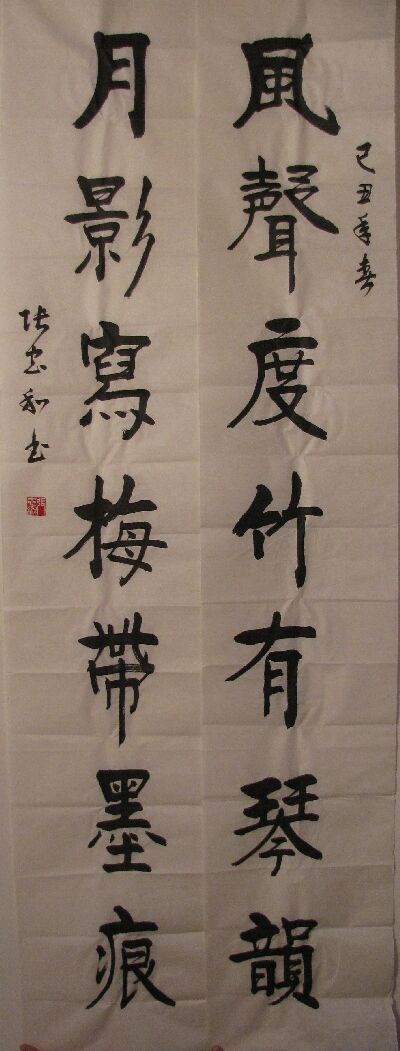 己丑年春
風聲度竹有琴韻
月影寫梅帶墨痕
张忠和书